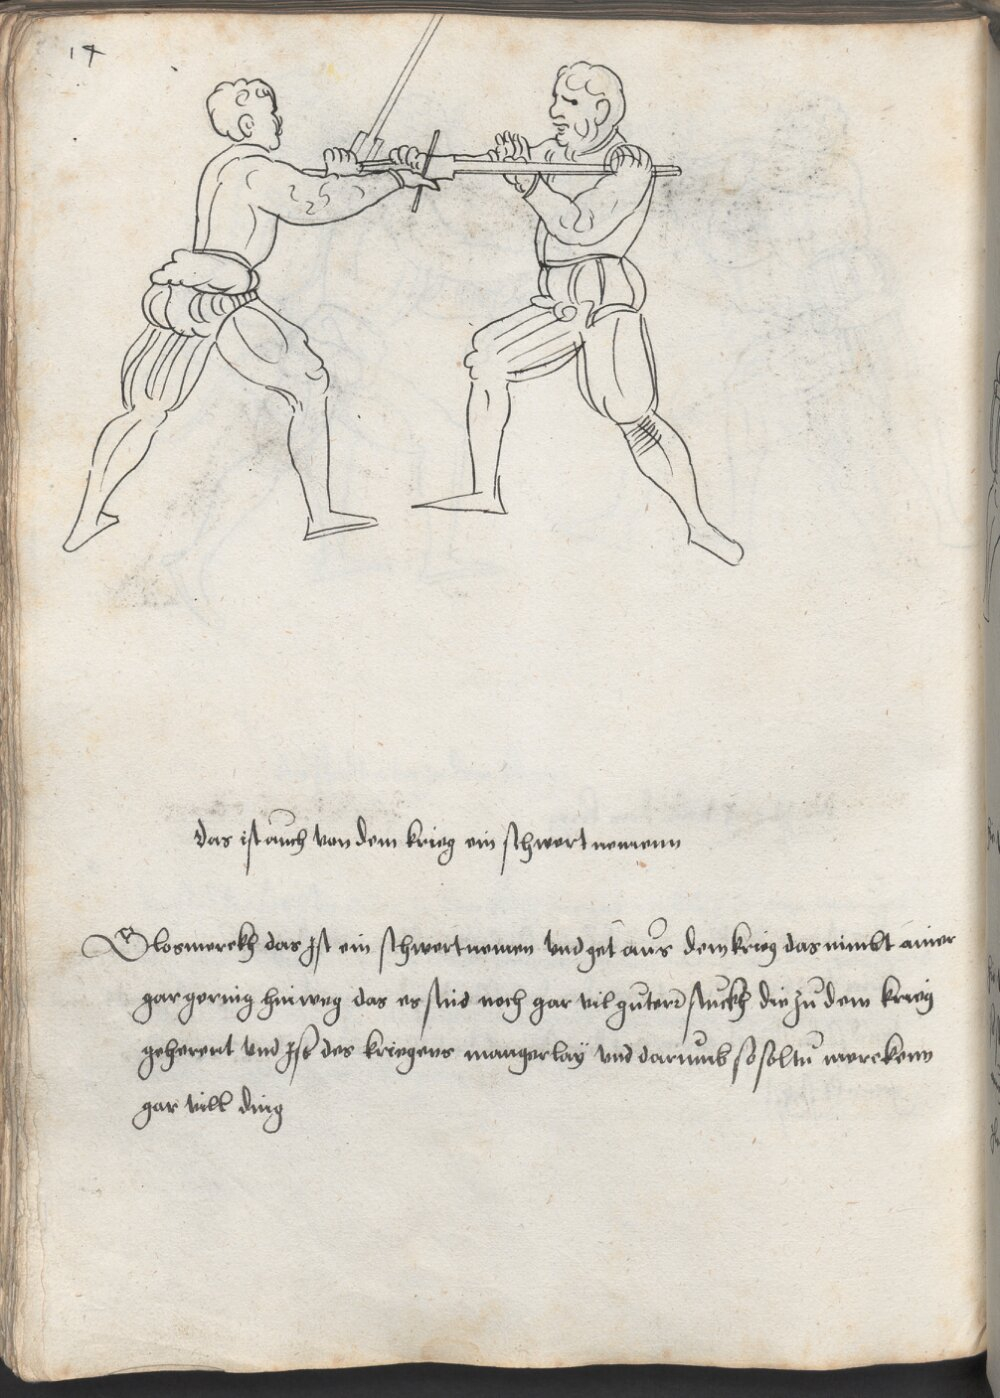 17
das ist auch von dem krieg ein schwert nemenn
Glosmerckh das Jst ein schwert nemen vnd get aus dem krieg das nimbt ainer
gar gering hinweg das es sind noch gar vil guterr stuckh die zu dem krieg
geherent vnd Jst des kriegens mangerlaÿ vnd darumb so soltu merckenn
gar vill ding